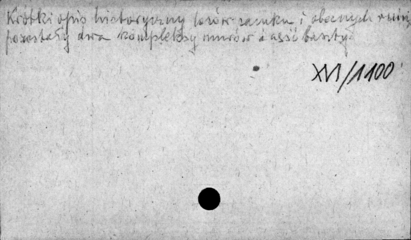 Krótki opis historyczny dziejów zamku i obecnych ruin,
pozostały dwa kompleksy murów i część baszty.
XVI/1100